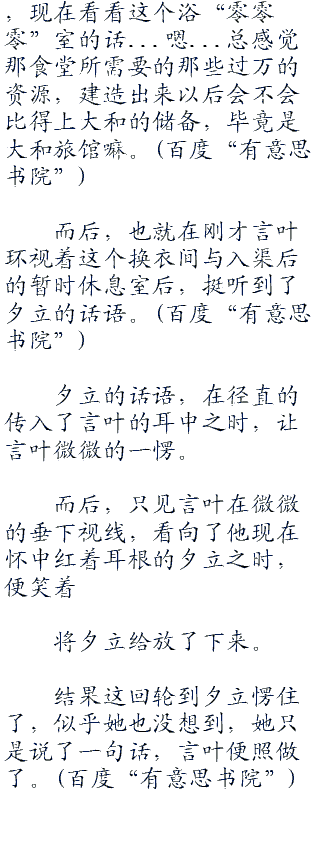 ，现在看看这个浴“零零
零”室的话...嗯...总感觉
那食堂所需要的那些过万的
资源，建造出来以后会不会
比得上大和的储备，毕竟是
大和旅馆嘛。(百度“有意思
书院”)
而后，也就在刚才言叶
环视着这个换衣间与入渠后
的暂时休息室后，挺听到了
夕立的话语。(百度“有意思
书院”)
夕立的话语，在径直的
传入了言叶的耳中之时，让
言叶微微的一愣。
而后，只见言叶在微微
的垂下视线，看向了他现在
怀中红着耳根的夕立之时，
便笑着
将夕立给放了下来。
结果这回轮到夕立愣住
了，似乎她也没想到，她只
是说了一句话，言叶便照做
了。(百度“有意思书院”)